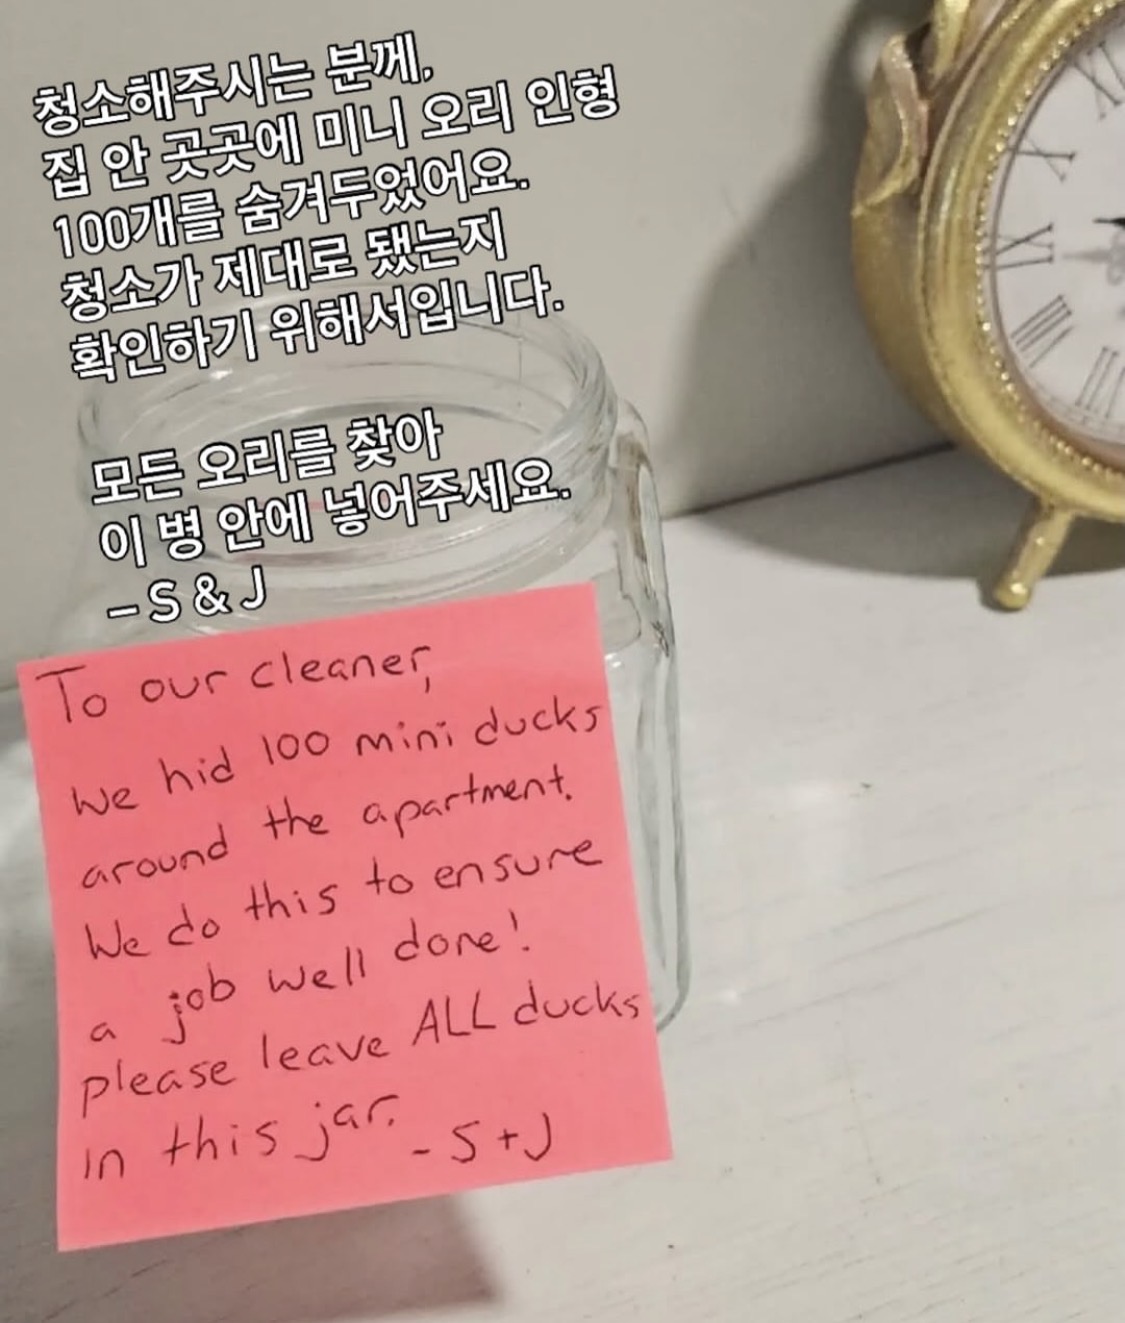 청소해주시는 분께,
집 안 곳곳에 미니 오리 인형
100개를 숨겨두었어요.
청소가 제대로 됐는지
확인하기 위해서입니다.
모든 오리를 찾아
이 병 안에 넣어주세요.
– S & J
To our cleaner,
we hid 100 mini ducks
around the apartment.
We do this to ensure
a job well done!
please leave ALL ducks
in this jar.
- S + J